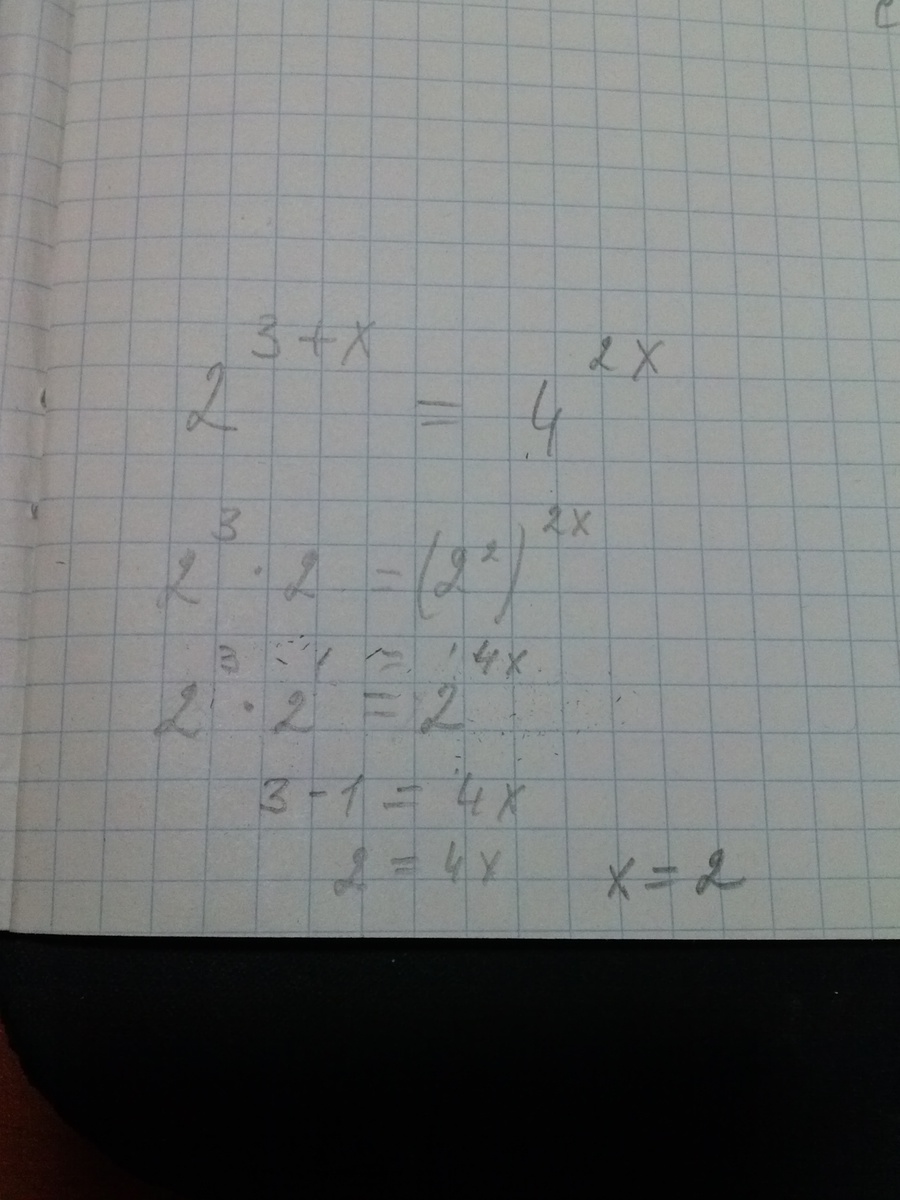 2^{3+x} = 4^{2x}
2^3 · 2 = (2^2)^{2x}
2^3 · 2^1 = 2^{4x}
3 - 1 = 4x
2 = 4x x = 2